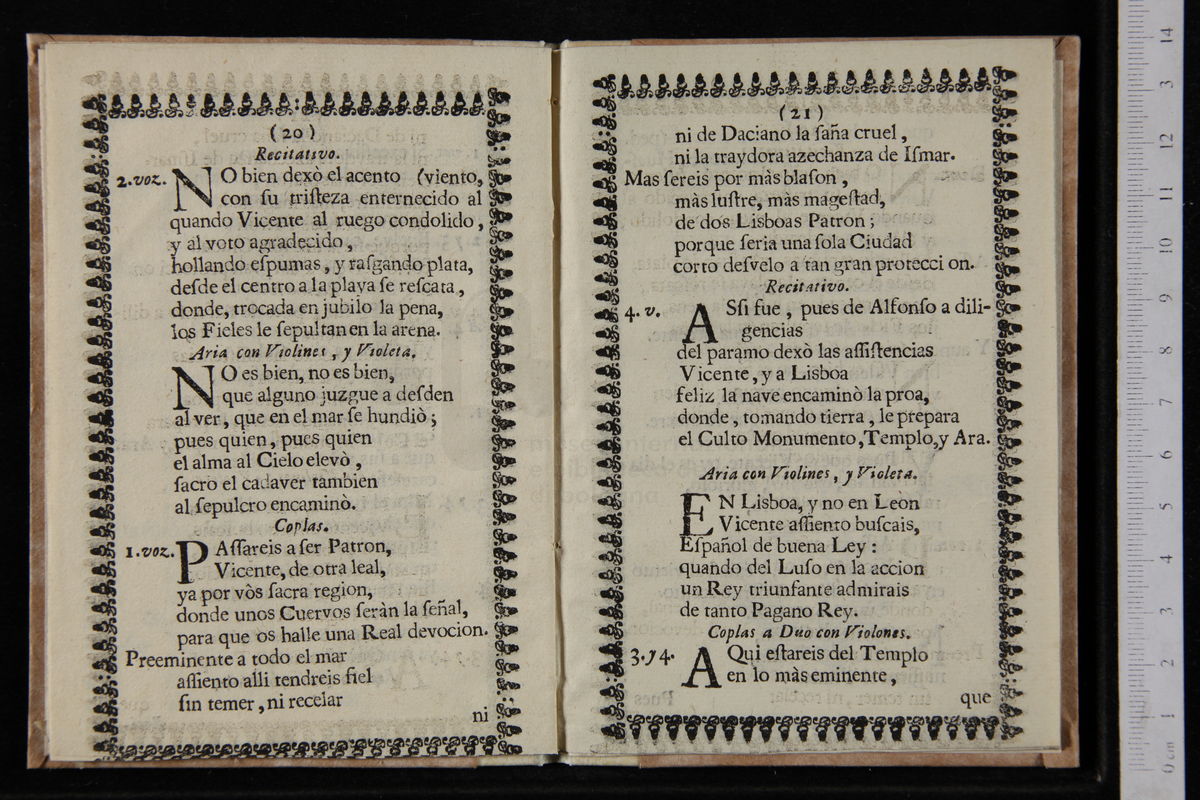 (20)
Recitativo.
2. voz. NO bien dexò el acento (viento,
con su tristeza enternecido al
quando Vicente al ruego condolido,
y al voto agradecido,
hollando espumas, y rasgando plata,
desde el centro a la playa se rescata,
donde, trocada en jubilo la pena,
los Fieles le sepultan en la arena.
Aria con Violines, y Violeta.
NO es bien, no es bien,
que alguno juzgue a desden
al ver, que en el mar se hundiò;
pues quien, pues quien
el alma al Cielo elevò,
sacrò el cadaver tambien
al sepulcro encaminò.
Coplas.
1. voz. PAssareis a ser Patron,
Vicente, de otra leal,
ya por vòs sacra region,
donde unos Cuervos seràn la señal,
para que os halle una Real devocion.
Preeminente a todo el mar
assiento alli tendreis fiel
sin temer, ni recelar
ni
(21)
ni de Daciano la saña cruel,
ni la traydora azechanza de Ismar.
Mas sereis por màs blason,
màs lustre, màs magestad,
de dos Lisboas Patron;
porque seria una sola Ciudad
corto desvelo a tan gran protecci on.
Recitativo.
4. v. ASsi fue, pues de Alfonso a dili-
gencias
del paramo dexò las assistencias
Vicente, y a Lisboa
feliz la nave encaminò la proa,
donde, tomando tierra, le prepara
el Culto Monumento, Templo, y Ara.
Aria con Violines, y Violeta.
EN Lisboa, y no en Leòn
Vicente assiento buscais,
Español de buena Ley:
quando del Luso en la accion
un Rey triunfante admirais
de tanto Pagano Rey.
Coplas a Duo con Violones.
3. y 4. AQui estareis del Templo
en lo màs eminente,
que
14
13
12
11
10
9
8
7
6
5
4
3
2
1
0 cm